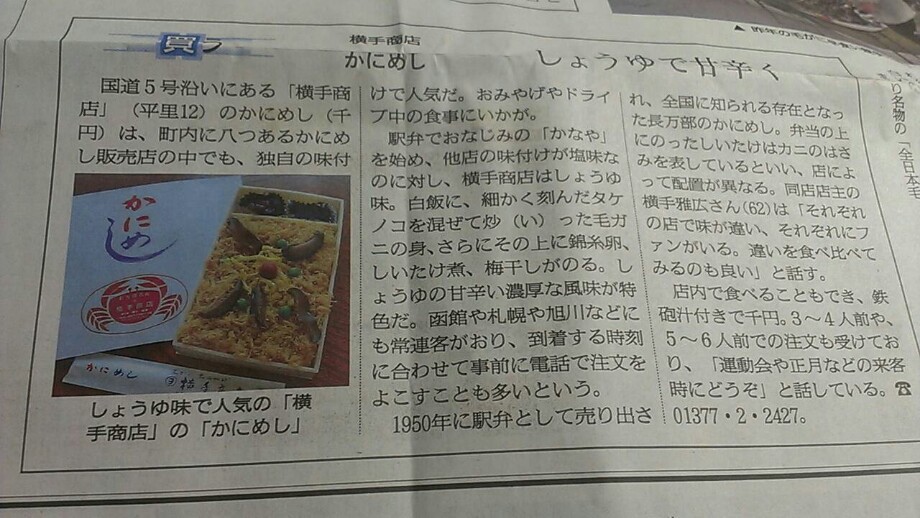 ▲昨年の毛がに
買う
横手商店
かにめし
しょうゆで甘辛く
国道5号沿いにある「横手商
店」（平里12）のかにめし（千
円）は、町内に八つあるかにめ
し販売店の中でも、独自の味付
かにめし
かにめし
しょうゆ味で人気の「横
手商店」の「かにめし」
けで人気だ。おみやげやドライ
ブ中の食事にいかが。
駅弁でおなじみの「かなや」
を始め、他店の味付けが塩味な
のに対し、横手商店はしょうゆ
味。白飯に、細かく刻んだタケ
ノコを混ぜて炒（い）った毛ガ
ニの身、さらにその上に錦糸卵、
しいたけ煮、梅干しがのる。し
ょうゆの甘辛い濃厚な風味が特
色だ。函館や札幌や旭川などに
も常連客がおり、到着する時刻
に合わせて事前に電話で注文を
よこすことも多いという。
1950年に駅弁として売り出さ
れ、全国に知られる存在となっ
た長万部のかにめし。弁当の上
にのったしいたけはカニのはさ
みを表しているといい、店によ
って配置が異なる。同店店主の
横手雅広さん(62)は「それぞれ
の店で味が違い、それぞれにフ
ァンがいる。違いを食べ比べて
みるのも良い」と話す。
店内で食べることもでき、鉄
砲汁付きで千円。3～4人前や、
5～6人前での注文も受けてお
り、「運動会や正月などの来客
時にどうぞ」と話している。☎
01377・2・2427。
り名物の「全日本